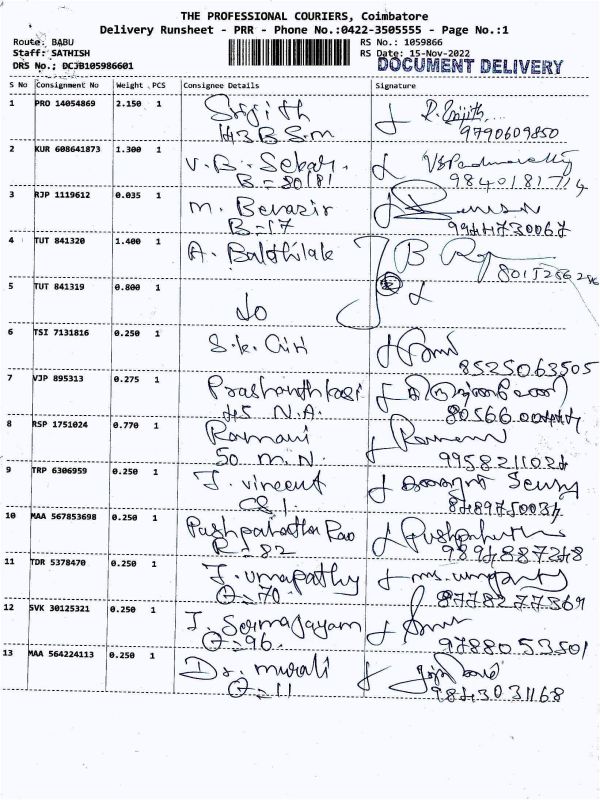 THE PROFESSIONAL COURIERS, Coimbatore
Delivery Runsheet - PRR - Phone No.:0422-3505555 - Page No.:1
Route: BABU
Staff: SATHISH
DRS No.: DCJB105986601
RS No.: 1059866
RS Date: 15-Nov-2022
DOCUMENT DELIVERY
S No Consignment No Weight PCS Consignee Details Signature
1 PRO 14054869 2.150 1 Srijith
43 B S.M 9790609850
2 KUR 608641873 1.300 1 V. B. Sekar.
B = 80/81 9840181774
3 RJP 1119612 0.035 1 M. Benazir
B=17 9944730067
4 TUT 841320 1.400 1 A. 8015256256
5 TUT 841319 0.800 1 do
6 TSI 7131816 0.250 1 S.K. Giri
8525063505
7 VJP 895313 0.275 1
45 N.A.
8 RSP 1751024 0.770 1 Ramani
50 M.N. 9958211024
9 TRP 6306959 0.250 1 J. Vincent
8489750034
10 MAA 567853698 0.250 1 Rao
R=82 9894887248
11 TDR 5378470 0.250 1 J. Umapathy
O=70 8778277369
12 SVK 30125321 0.250 1 J.
O=96 9788053501
13 MAA 564224113 0.250 1 Dr. Murali
O=11 9843031168